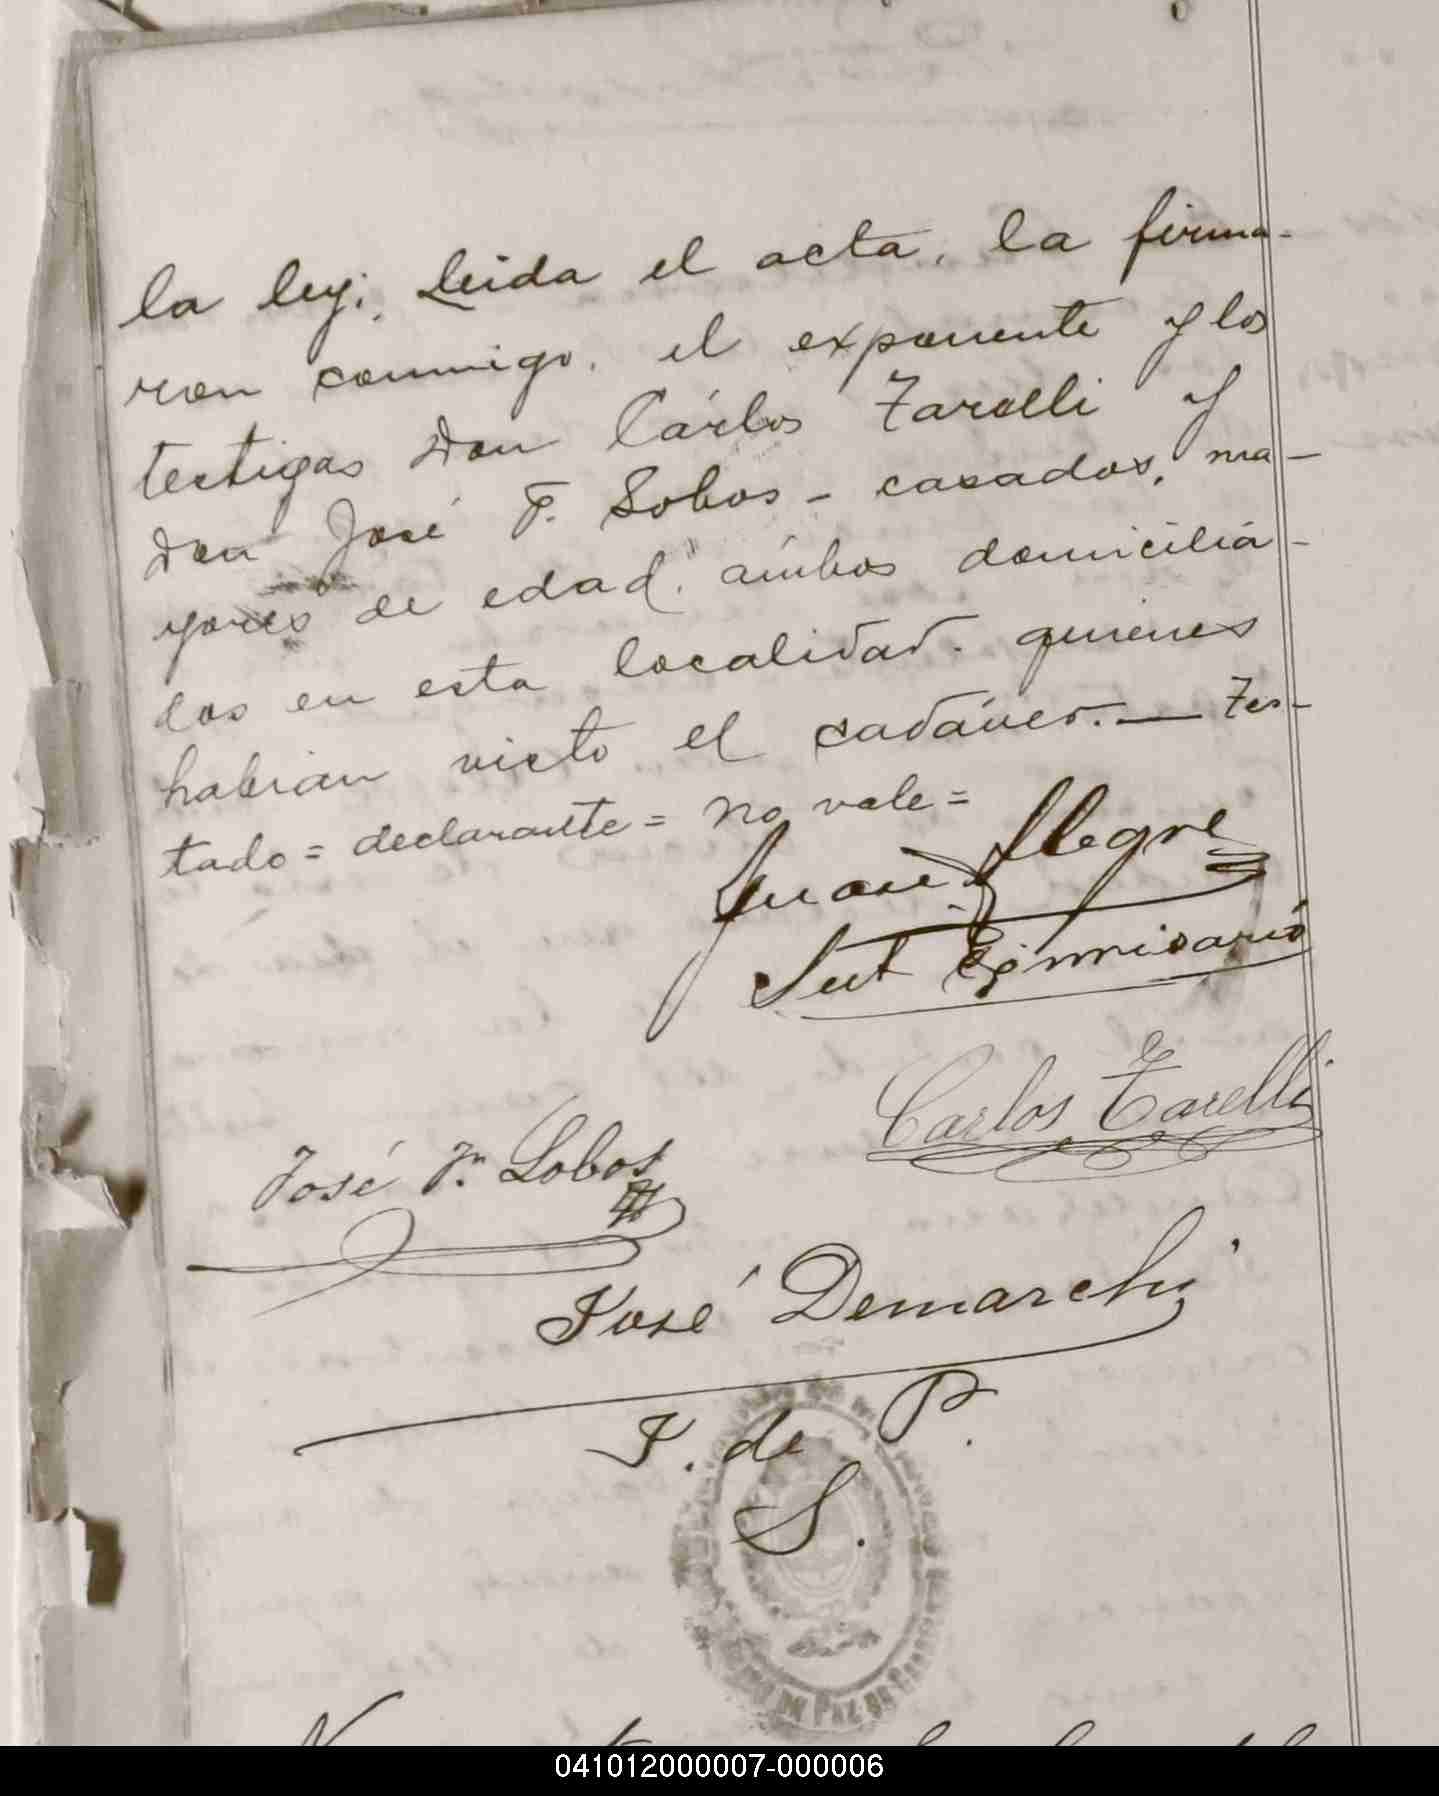 la ley; Leida el acta, la firma-
ron conmigo, el exponente y los
testigos Don Cárlos Tarelli y
Don José F. Lobos - casados, ma-
yores de edad, ambos domicilia-
dos en esta localidad, quienes
habian visto el cadáver. — Tes-
tado = declarante = no vale =
Juan Alegre
Sub Comisario
Carlos Tarelli
José F. Lobos
José Demarchi
J. de P.
S.
DE PAZ DE
041012000007-000006